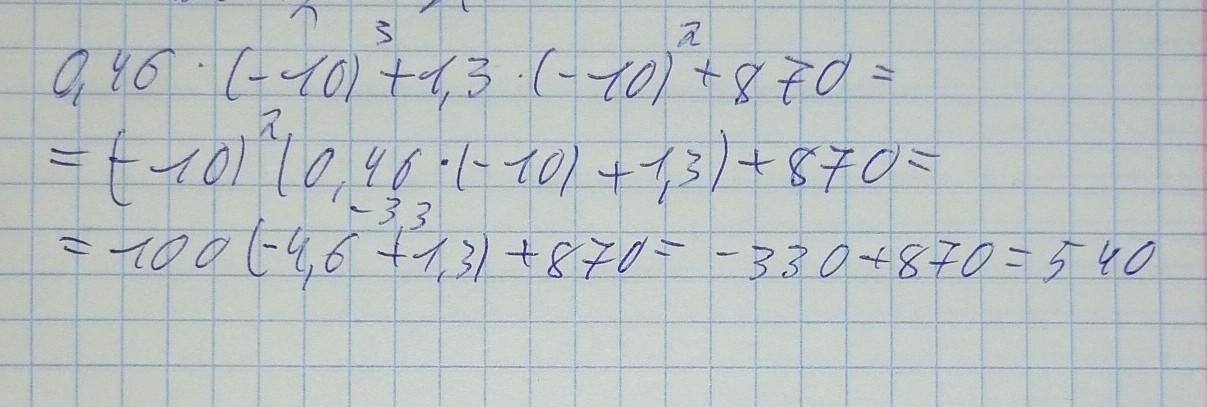 0,46 · (-10)³ + 1,3 · (-10)² + 870 =
= (-10)² (0,46 · (-10) + 1,3) + 870 =
-3,3
= 100 (-4,6 + 1,3) + 870 = -330 + 870 = 540